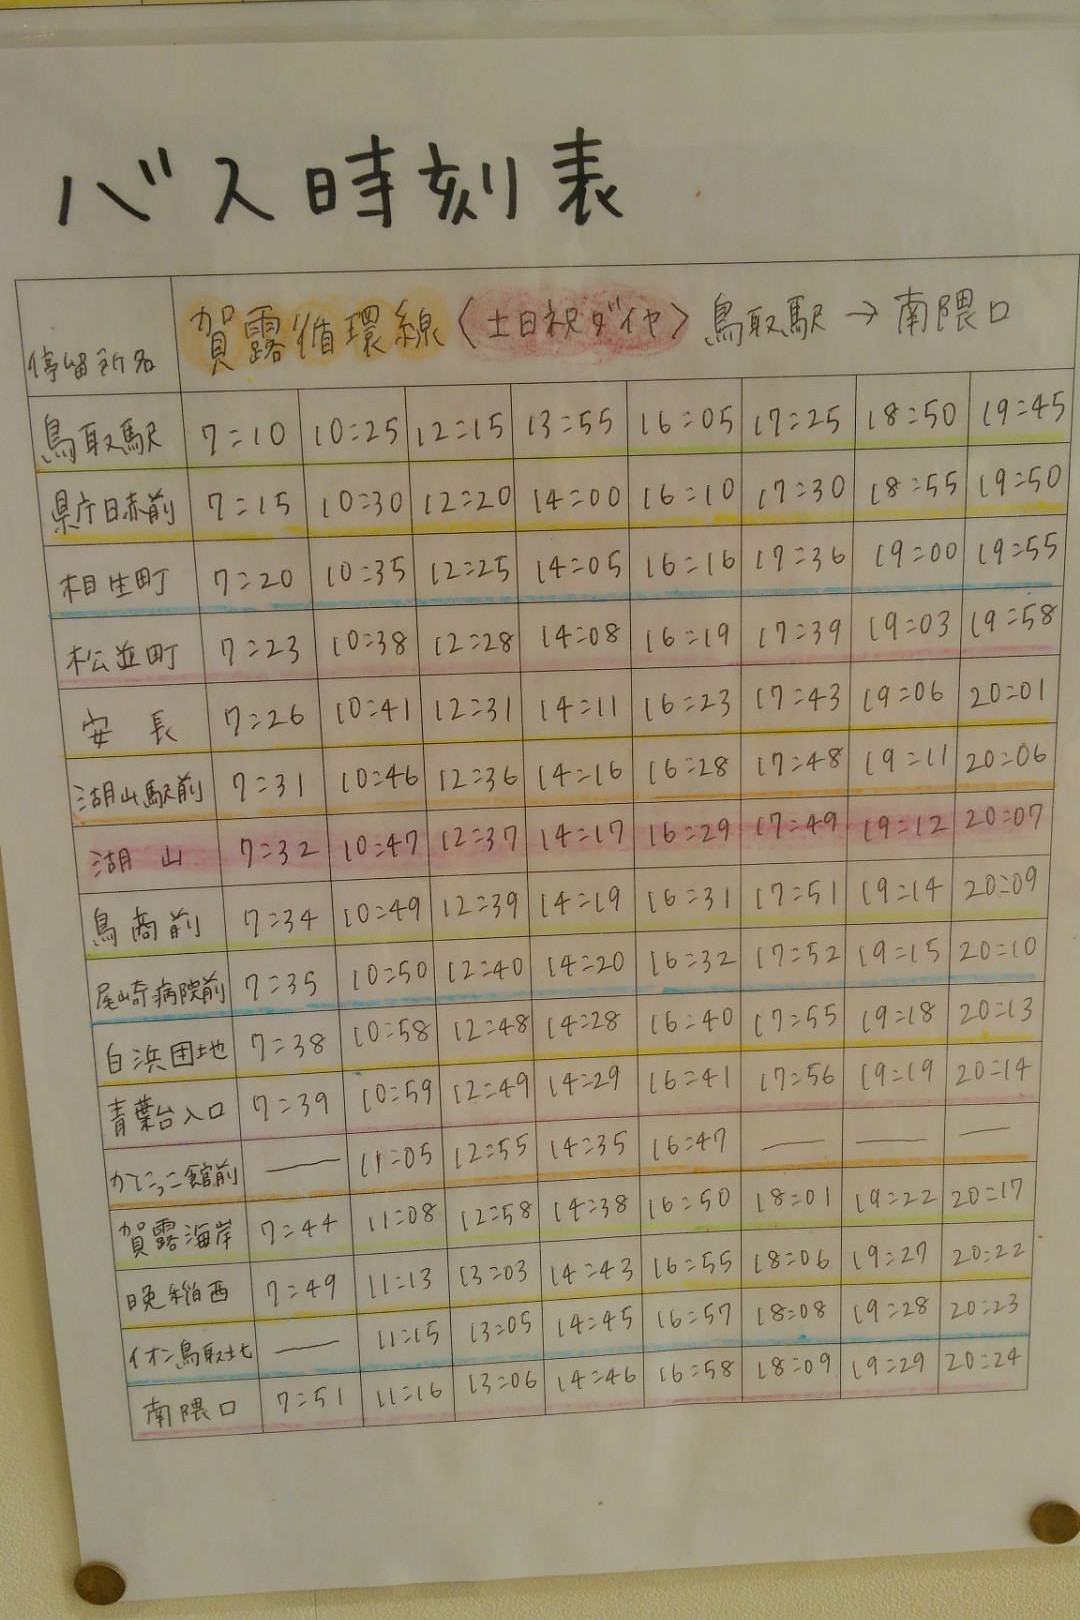 バス時刻表
停留所名 賀露循環線〈土日祝ダイヤ〉鳥取駅→南隈口
鳥取駅 7:10 10:25 12:15 13:55 16:05 17:25 18:50 19:45
県庁日赤前 7:15 10:30 12:20 14:00 16:10 17:30 18:55 19:50
相生町 7:20 10:35 12:25 14:05 16:16 17:36 19:00 19:55
松並町 7:23 10:38 12:28 14:08 16:19 17:39 19:03 19:58
安長 7:26 10:41 12:31 14:11 16:23 17:43 19:06 20:01
湖山駅前 7:31 10:46 12:36 14:16 16:28 17:48 19:11 20:06
湖山 7:32 10:47 12:37 14:17 16:29 17:49 19:12 20:07
鳥商前 7:34 10:49 12:39 14:19 16:31 17:51 19:14 20:09
尾崎病院前 7:35 10:50 12:40 14:20 16:32 17:52 19:15 20:10
白浜団地 7:38 10:58 12:48 14:28 16:40 17:55 19:18 20:13
青葉台入口 7:39 10:59 12:49 14:29 16:41 17:56 19:19 20:14
かにっこ館前 — 11:05 12:55 14:35 16:47 — — —
賀露海岸 7:44 11:08 12:58 14:38 16:50 18:01 19:22 20:17
晩稲西 7:49 11:13 13:03 14:43 16:55 18:06 19:27 20:22
イオン鳥取北 — 11:15 13:05 14:45 16:57 18:08 19:28 20:23
南隈口 7:51 11:16 13:06 14:46 16:58 18:09 19:29 20:24